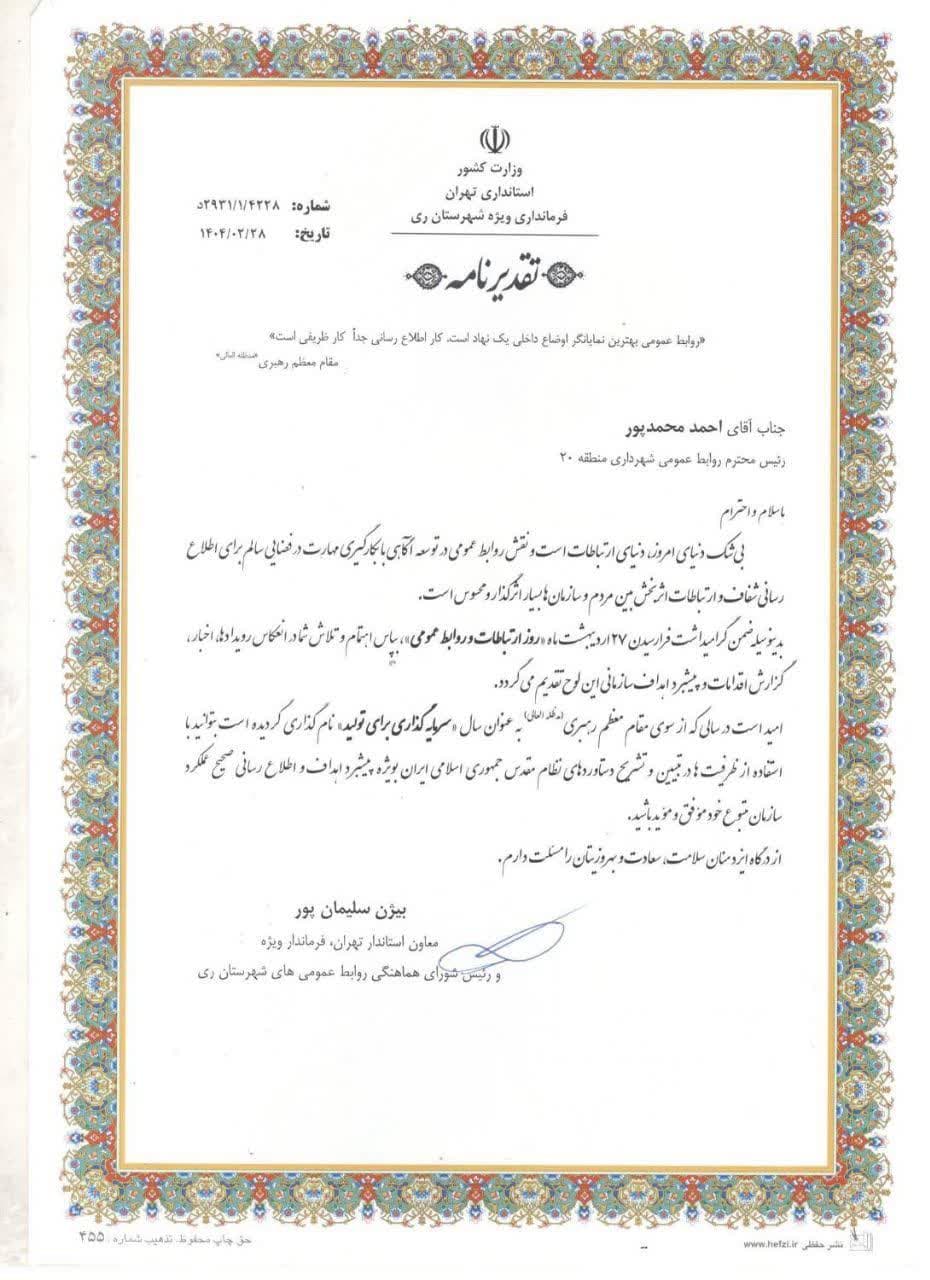 وزارت کشور
استانداری تهران
فرمانداری ویژه شهرستان ری
شماره: ۲۹۳۱/۱/۴۲۲۸د
تاریخ: ۱۴۰۴/۰۲/۲۸
تقدیرنامه
«روابط عمومی بهترین نمایانگر اوضاع داخلی یک نهاد است. کار اطلاع رسانی جداً کار ظریفی است»
مقام معظم رهبری «مدظله العالی»
جناب آقای احمد محمدپور
رئیس محترم روابط عمومی شهرداری منطقه ۲۰
باسلام و احترام
بی شک دنیای امروز، دنیای ارتباطات است و نقش روابط عمومی در توسعه آگاهی با بکارگیری مهارت در فضایی سالم برای اطلاع
رسانی شفاف و ارتباطات اثربخش بین مردم و سازمان ها بسیار اثرگذار و محسوس است.
بدینوسیله ضمن گرامیداشت فرارسیدن ۲۷ اردیبهشت ماه «روز ارتباطات و روابط عمومی»، بپاس اهتمام و تلاش شما در انعکاس رویدادها، اخبار،
گزارش اقدامات و پیشبرد اهداف سازمانی این لوح تقدیم می گردد.
امید است در سالی که از سوی مقام معظم رهبری (مدظله العالی) به عنوان سال «سرمایه گذاری برای تولید» نام گذاری گردیده است بتوانید با
استفاده از ظرفیت ها در تبیین و تشریح دستاوردهای نظام مقدس جمهوری اسلامی ایران بویژه پیشبرد اهداف و اطلاع رسانی صحیح عملکرد
سازمان متبوع خود موفق و موید باشید.
از درگاه ایزد منان سلامت، سعادت و بهروزیتان را مسئلت دارم.
بیژن سلیمان پور
معاون استاندار تهران، فرماندار ویژه
و رئیس شورای هماهنگی روابط عمومی های شهرستان ری
نشر حفظی www.hefzi.ir
حق چاپ محفوظ. تذهیب شماره : ۴۵۵